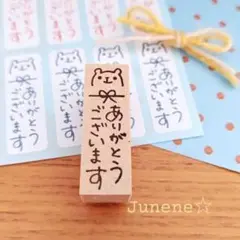 ありがとう
ございます
ありがとう
ございます
ありがとう
ございます
ありがとう
ございます
ありがとう
ございます
Junene☆